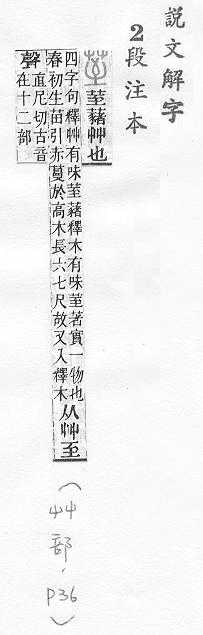 說文解字
2段注本
荎藸艸也
四字句釋艸有味荎藸釋木有味荎著實一物也
春初生苗引赤蔓於高木長六七尺故又入釋木
从艸至
聲
直尼切古音
在十二部
(艸部, p36)